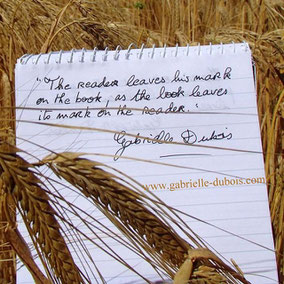 "The reader leaves his mark
on the book, as the book leaves
its mark on the reader."
Gabrielle Dubois
www.gabrielle-dubois.com